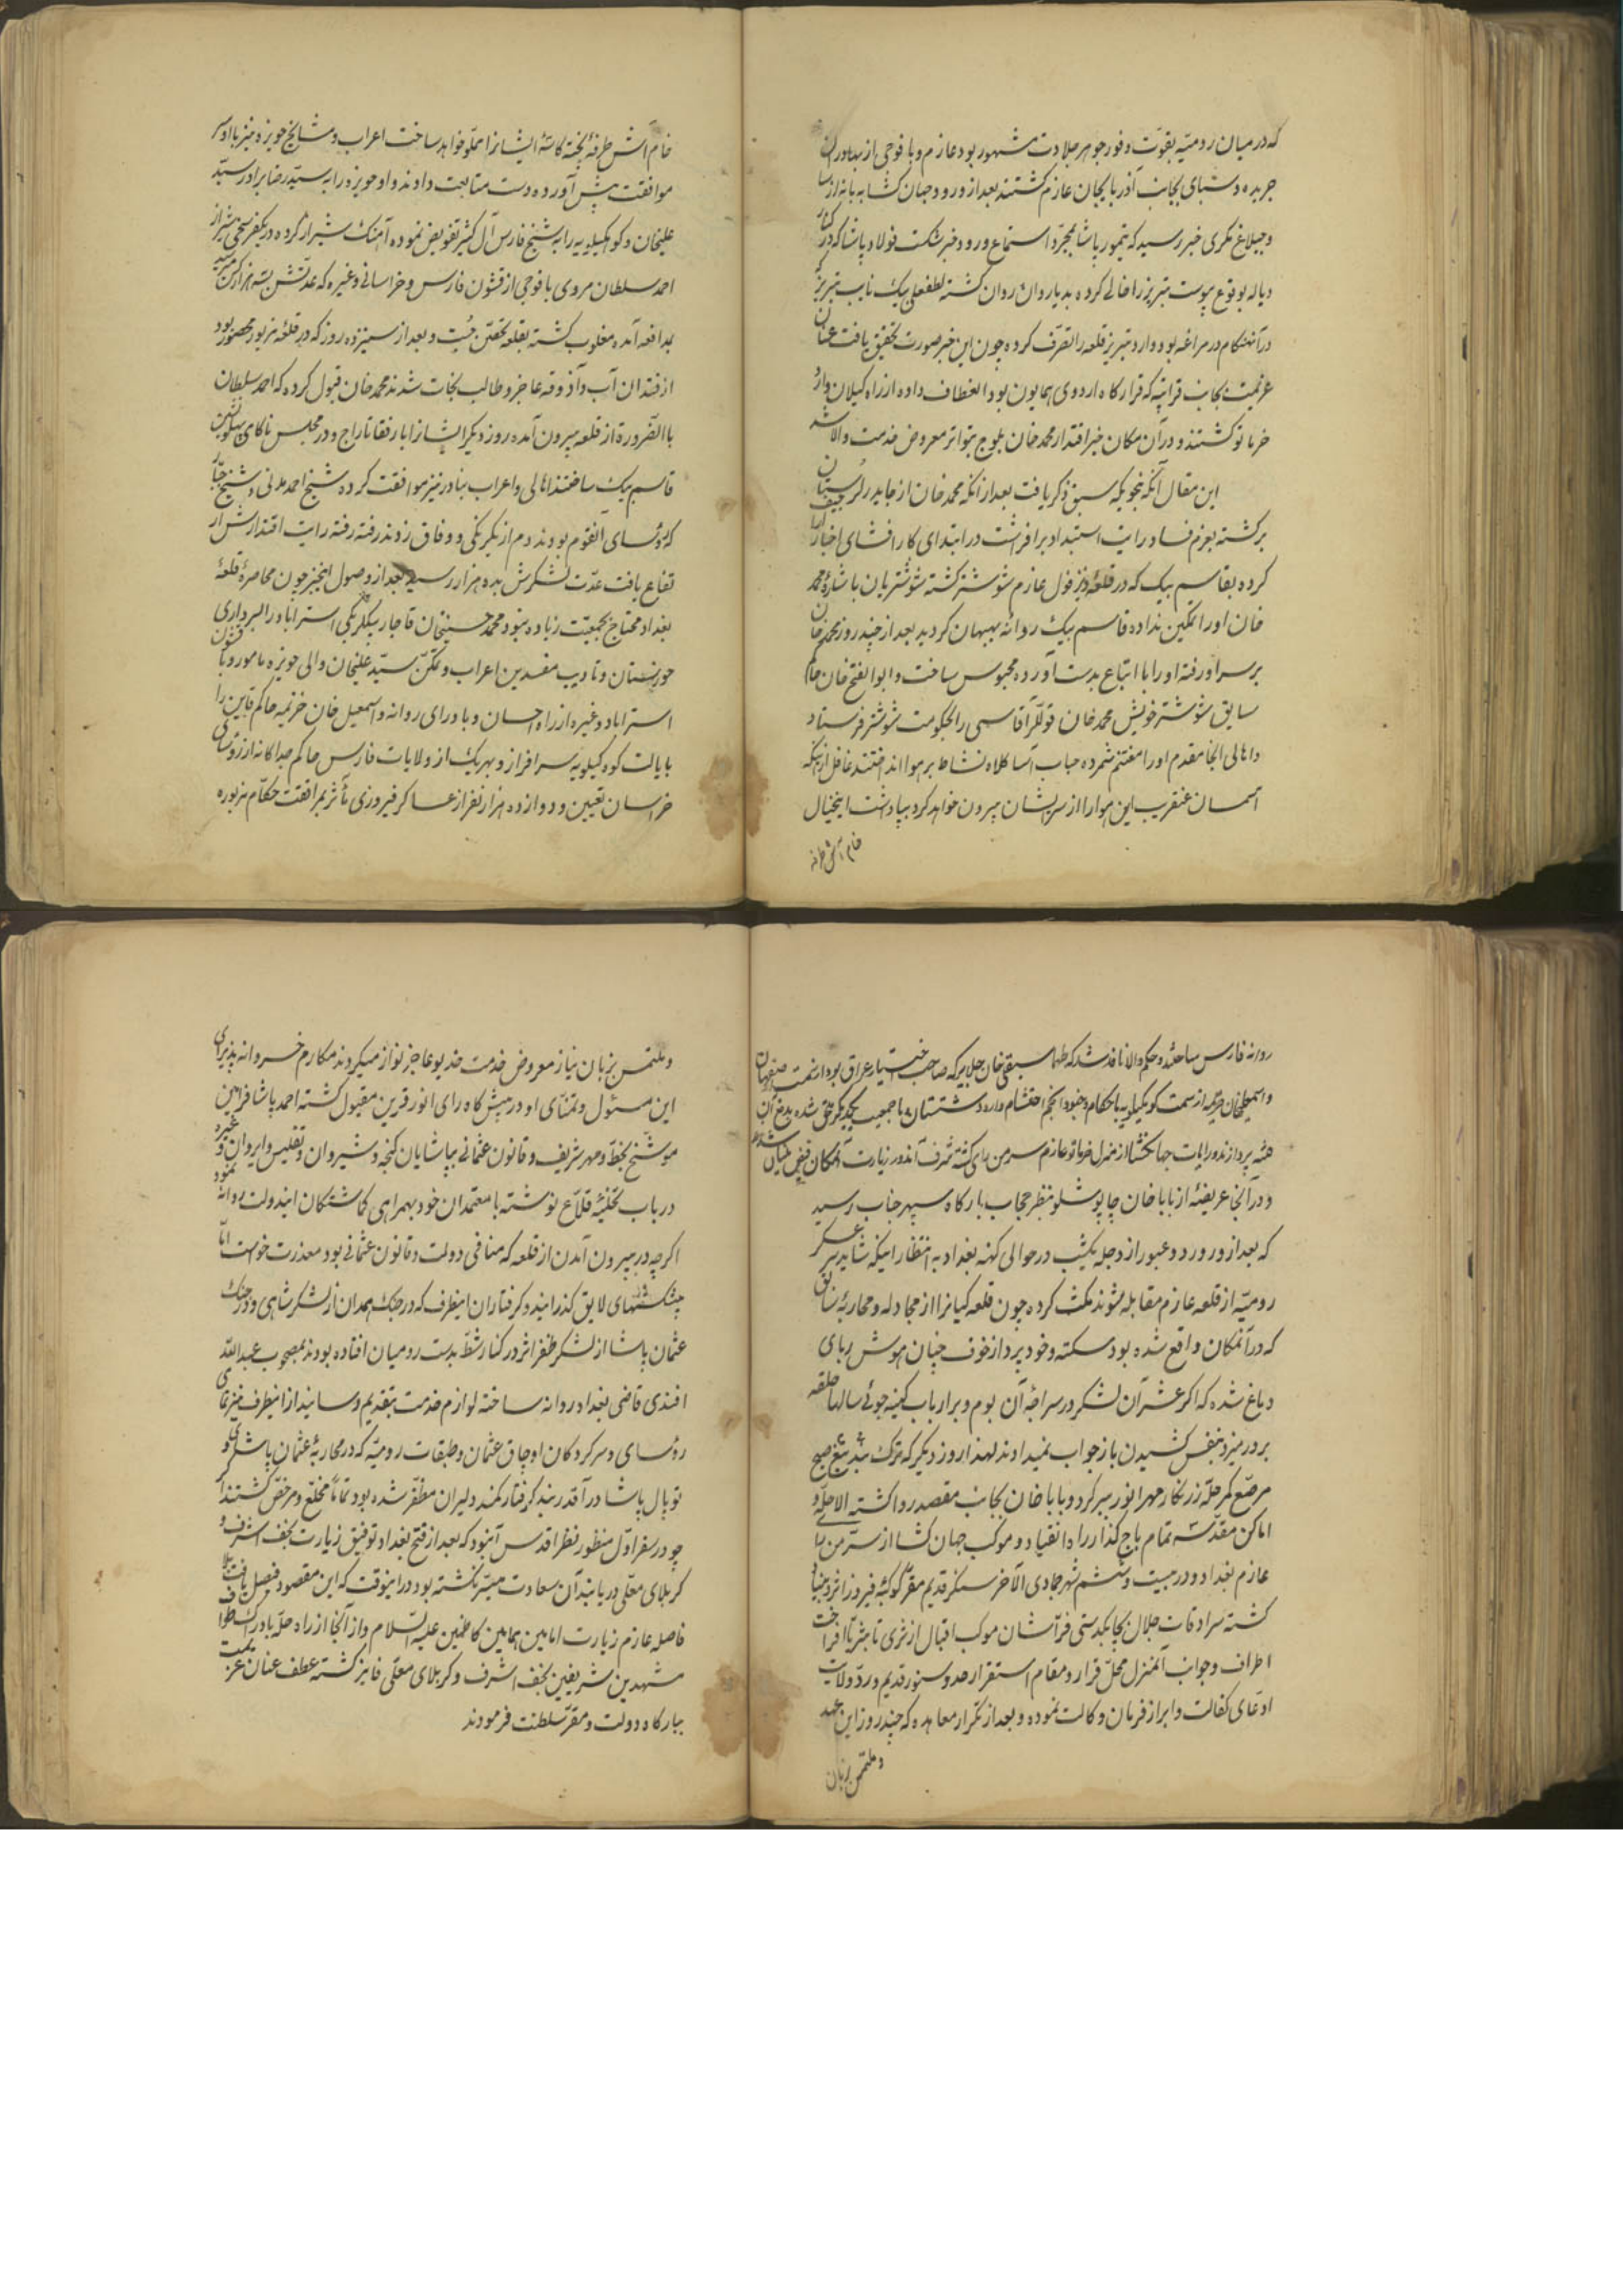 که در میان رومیّه بقوّت و فور جوهر جلادت مشهور بود عازم و با فوجی از بهادران
جریده و سبای بجانب آذربایجان عازم کشتند بعد از ورود جهان کشا به بانه از
و جیلاغ مکری خبر رسید که تیمور پاشا بمجرّد استماع ورود خبر شکست فولاد پاشا که در کنار
دیاله بوقوع پیوست تبریز را خالی کرده بدیار وان روان کشته لطفعلی بیک نایب تبریز که
در آنهنکام در مراغه بود وارد تبریز و قلعه را تصرّف کرده چون این خبر صورت تحقیق یافت عنان
عزیمت بجانب قراتپه که قرارکاه اردوی همایون بود انعطاف داده از راه کیلان وارد
خرماتو کشتند و در آن مکان خبر اقتدار محمد خان بلوچ بتواتر معروض خدمت والا شد
این مقال آنکه بنحویکه سبق ذکر یافت بعد از آنکه محمد خان از جایدر لرستان
برکشته بعزم فساد رایت استبداد برافراشت در ابتدای کار افشای اخبار
کرده بقاسم بیک که در قلعه دزفول عازم شوشتر کشته شوشتریان باشاره محمد
خان او را تمکین نداده قاسم بیک روانه بهبهان کردید بعد از چند روز محمد خان
بر سر او رفته او را با اتباع بدست آورده محبوس ساخت و ابو الفتح خان حاکم
سابق شوشتر خویش محمد خان قوللر آقاسی را بحکومت شوشتر فرستاد
و اهالی انجا مقدم او را مغتنم شمرده حباب آسا کلاه نشاط بر هوا انداختند غافل از اینکه
آسمان عنقریب این هوا را از سر ایشان بیرون خواهد کرد و بپاداشت اینخیال
خام آش طرفه
خام آش طرفه پخته کاسه ایشانرا مملو خواهد ساخت اعراب و مشایخ حویزه نیز با او سر
موافقت پیش آورده دست متابعت دادند و او حویزه را به سیّد رضا برادر سیّد
علیخان و کوهکیلویه را به شیخ فارس آل کثیر تفویض نموده آهنک شیراز کرده در یکفرسخی شیراز
احمد سلطان مروی با فوجی از قشون فارس و خراسانی و غیره که عدّتش بسه هزار کس میرسید
بمدافعه آمده مغلوب کشته بقلعه تحصّن جست و بعد از سیزده روز که در قلعه مزبور محصور بود
از فقدان آب و آذوقه عاجز و طالب نجات شدند محمد خان قبول کرده که احمد سلطان
باالضّروره از قلعه بیرون آمده روز دیکر ایشانرا با رفقا تاراج و در مجلس ناکامی همنشین
قاسم بیک ساختند اهالی و اعراب بنادر نیز موافقت کرده شیخ احمد مدنی و شیخ جبّار
که رؤسای آنقوم بودند دم از یکرنکی و وفاق زدند رفته رفته رایت اقتدارش ار
تفاع یافت عدّت لشکرش بده هزار رسید بعد از وصول اینخبر چون محاصره قلعه
بغداد محتاج بجمعیّت زیاده نبود محمد حسینخان قاجار بیکلربکی استراباد را بسرداری
خوزستان و تادیب مفسدین اعراب و تمکّن سیّد علیخان والی حویزه مامور و با قشون
استراباد و غیره از راه احسان و باورای روانه و اسمعیل خان خزیمه حاکم قاین را
بایالت کوه کیلویه سرافراز و بهریک از ولایات فارس حاکم جداکانه از رؤسای
خراسان تعیین و دوازده هزار نفر از عساکر فیروزی تأثر بمرافقت حکّام مزبوره
روانه فارس ساخته و حکم والا نافذ شد که طهماسبقلی خان جلایر که صاحب اختیار عراق بود از سمت اصفهان
و اسمعیلخان خزیمه از سمت کوهکیلویه با حکام و جنود انجم احتشام وارد شستان و با جمعیت یکدیکر ملحق شده بدفع آن
فتنه پردازند و رایات جهانکشا از منزل خرماتو عازم سرمن رای کشته شرف اندوز زیارت آنمکان فیض بنیان شدند
و در آنجا عریضه از بابا خان چاپوشلو بنظر حجاب بارکاه سپهر جناب رسید
که بعد از ورود و عبور از دجله یکشب در حوالی کهنه بغداد به انتظار اینکه شاید سر عسکر
رومیّه از قلعه عازم مقابله شوند مکث کرده چون قلعه کیانرا از مجادله و محاربه سابق
که در آنمکان واقع شده بود سکته و خودپرداز خوف چنان هوش ربای
دماغ شده که اکر عشر آن لشکر در سراچه آن بوم و بر ارباب کینه جوئی سالها حلقه
بر در میزد بنفس کشیدن باز جواب نمیدادند لهذا روز دیکر که ترک شب تیغ صبح
مرصّع کمر حلّه زرنکار مهر انور ببر کرد و بابا خان بجانب مقصد رو داشته الا حلّه و
اماکن مقدّسه تمام باج کذار راه انقیاد و موکب جهان کشا از سرّ من رای
عازم بغداد و در بیست و ششم شهر جمادی الآخر سنکر قدیم مقرّ کوکبه فیروز اثر و بنیاد
کشته سرادقات جلال بچابکدستی فرّاشان موکب اقبال از ثری تا ثریّا افراخت
اطراف و جوانب آنمنزل محلّ قرار و مقام استقرار حدود سنور قدیم و ردّ ولایات
ادّعای کفالت و ابراز فرمان وکالت نموده و بعد از تکرار معاهده که چند روز این عهد
و ملتمس بزبان
و ملتمس بزبان نیاز معروض خدمت خدیو عاجز نواز میکردند مکارم خسروانه پذیرای
این مسئول و تمنّای او در پیشکاه رای انور قرین مقبول کشته احمد پاشا فرامین
موشّح بخطّ و مهر شریف و قانون عثمانی بپاشایان کنجه و شیروان و تفلیس و ایروان و غیره
در باب تخلیه قلاع نوشته با معتمدان خود بهمراهی کماشتکان ایندولت روانه نمود
اکرچه در بیرون آمدن از قلعه که منافی دولت و قانون عثمانی بود معذرت خواست امّا
پیشکشهای لایق کذرانیده و کرفتاران اینطرف که در جنک همدان از لشکر شاهی و در جنک
عثمان پاشا از لشکر ظفر اثر در کنار شطّ بدست رومیان افتاده بودند بمصحوب عبداللّه
افندی قاضی بغداد روانه ساخته لوازم خدمت بتقدیم رسانید از اینطرف نیز تمامی
رؤسای و سرکردکان اوجاق عثمان و طبقات رومیّه که در محاربه عثمان پاشا و
توپال پاشا در آقدربند کرفتار کمند دلیران مظفّر شده بود تماماً مخلّع و مرخّص کشتند
چو در سفر اوّل منظور نظر اقدس آنبود که بعد از فتح بغداد توفیق زیارت نجف اشرف و
کربلای معلّی دریابند آن سعادت میسّر نکشته بود در اینوقت که این مقصود فیصل یافت بلا
فاصله عازم زیارت امامین همامین کاظمین علیه السّلام و از آنجا از راه حلّه بادراک طواف
مشهدین شریفین نجف اشرف و کربلای معلّی فایز کشته عطف عنان عزیمت
ببارکاه دولت و مقرّ سلطنت فرمودند